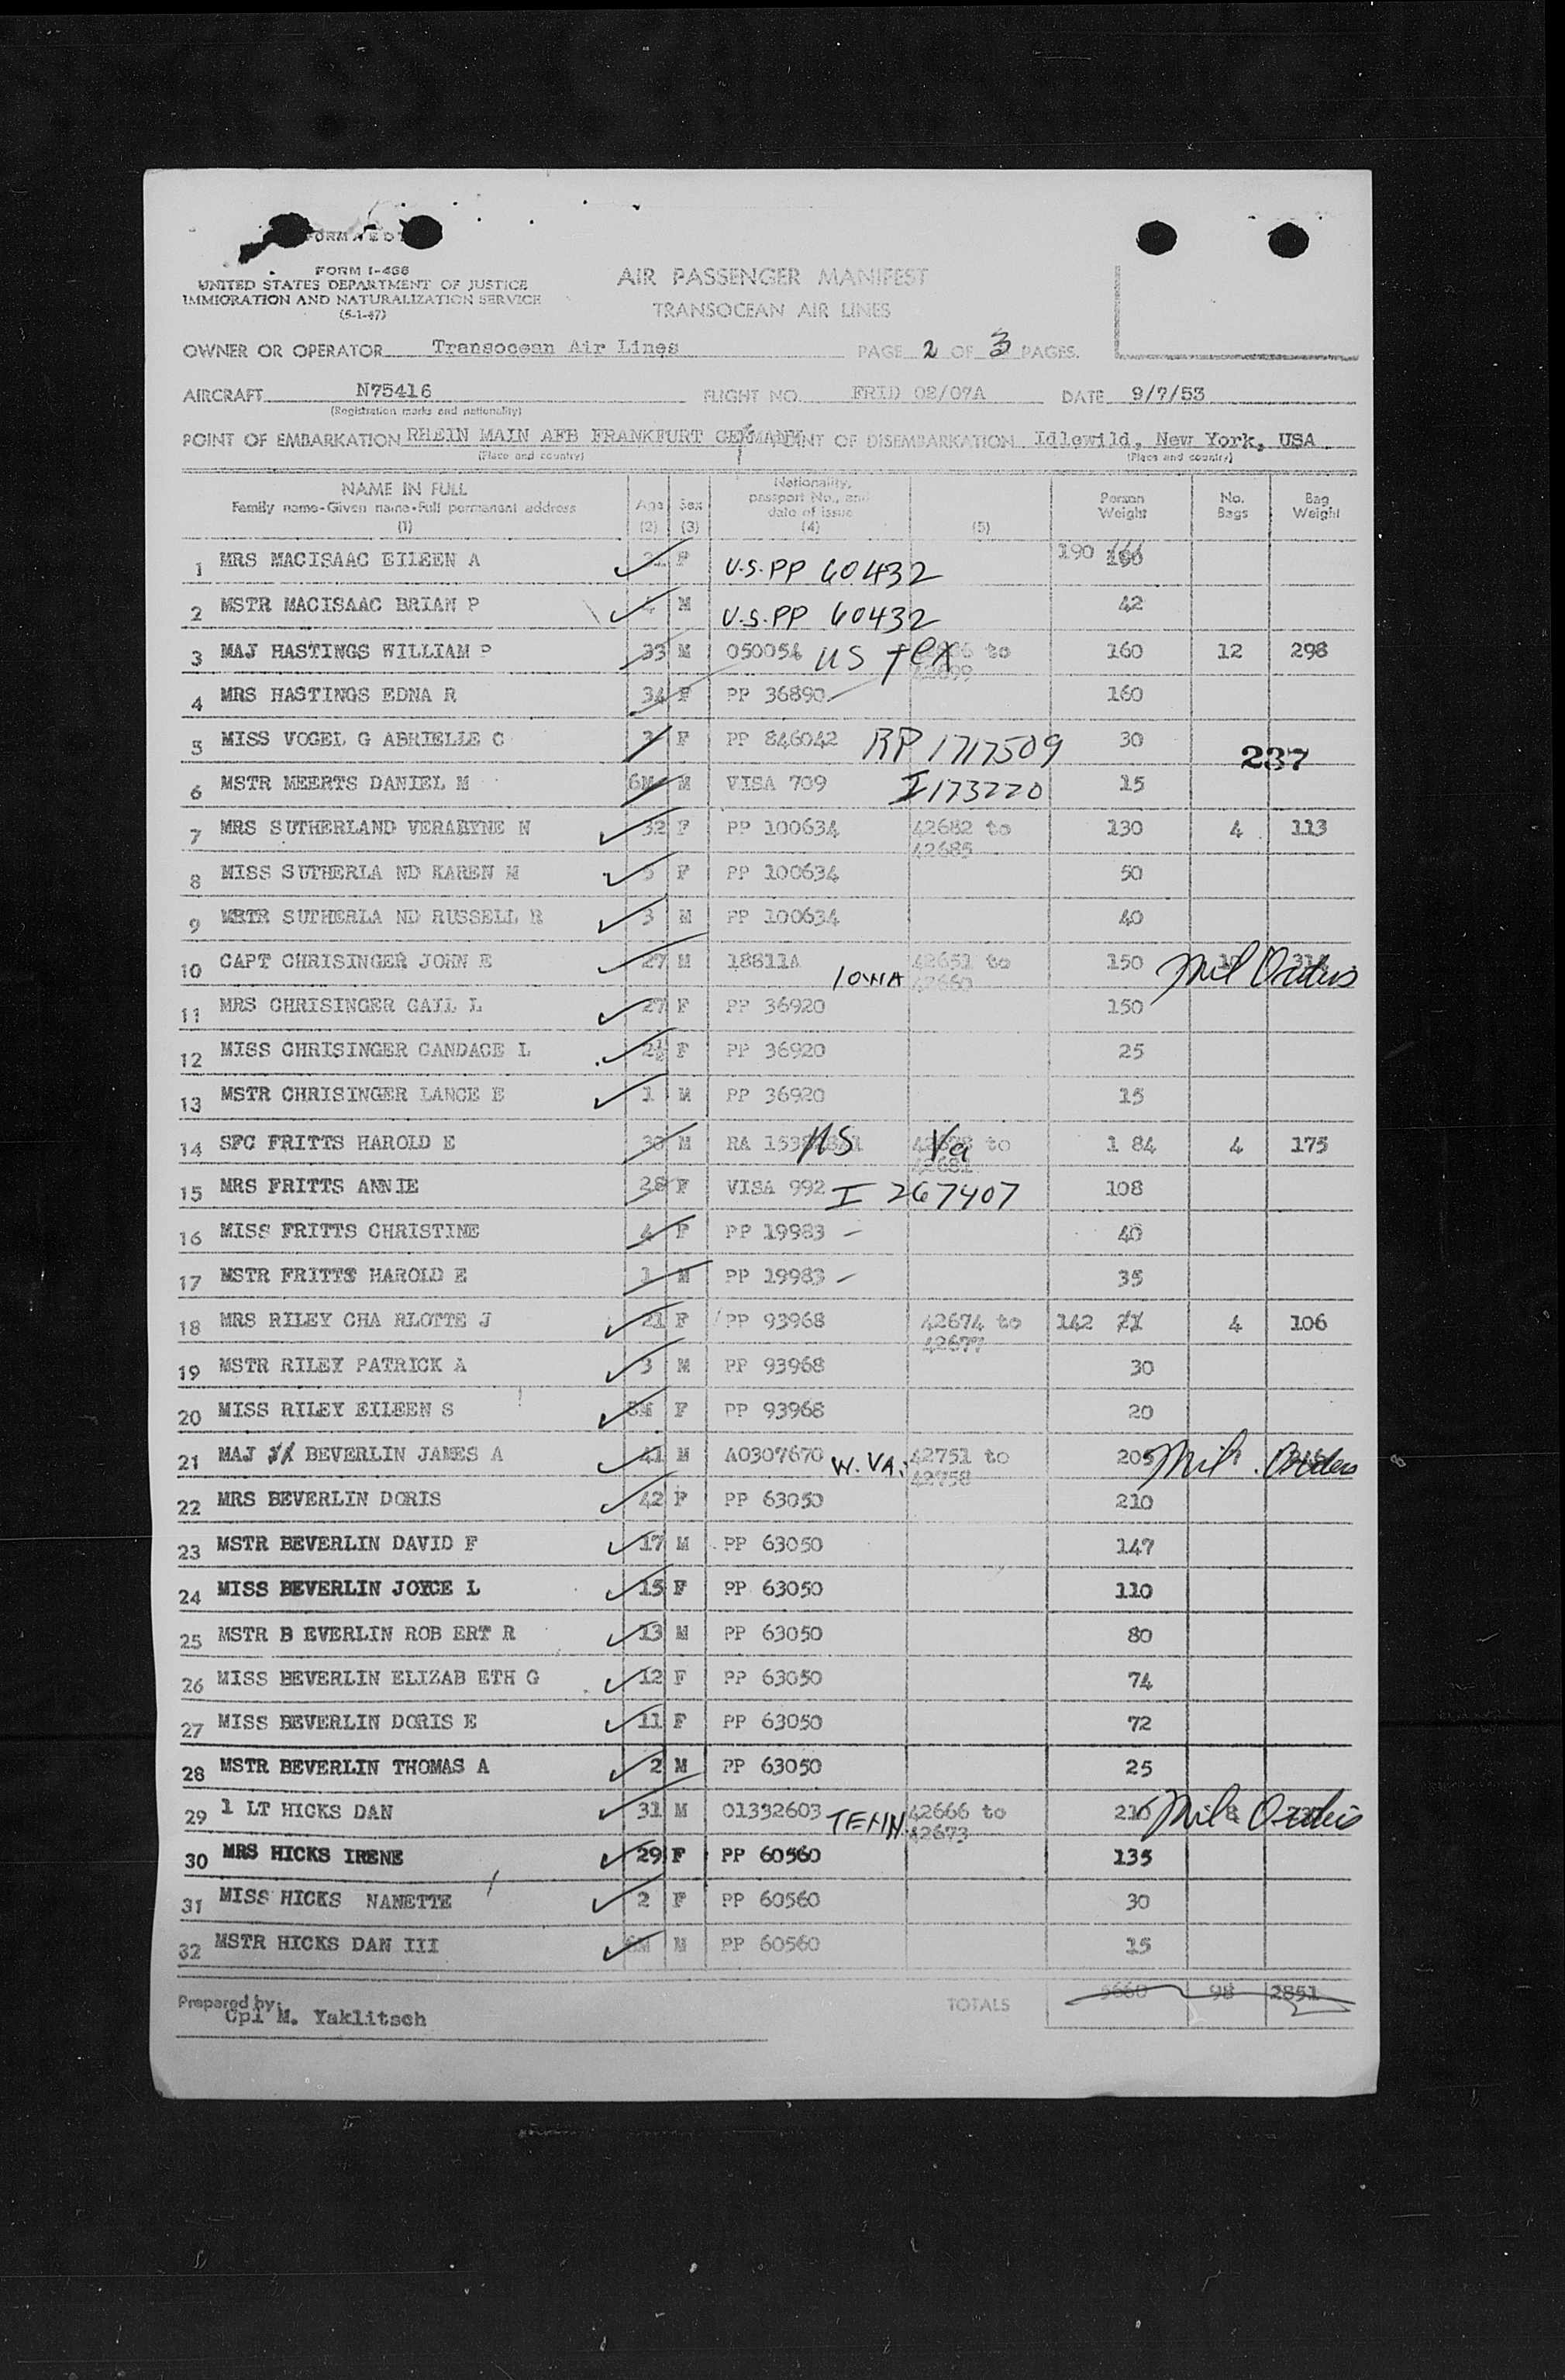 FORM I-466
UNITED STATES DEPARTMENT OF JUSTICE
IMMIGRATION AND NATURALIZATION SERVICE
(5-1-47)
AIR PASSENGER MANIFEST
TRANSOCEAN AIR LINES
OWNER OR OPERATOR Transocean Air Lines PAGE 2 OF 3 PAGES.
AIRCRAFT N75416 FLIGHT NO. FRID 02/07A DATE 9/7/53
(Registration marks and nationality)
POINT OF EMBARKATION RHEIN MAIN AFB FRANKFURT GERMANY POINT OF DISEMBARKATION Idlewild, New York, USA.
(Place and country) (Place and country)
NAME IN FULL Family name-Given name-Full permanent address (1) Age (2) Sex (3) Nationality, passport No., and date of issue (4) (5) Person Weight No. Bags Bag Weight
1 MRS MACISAAC EILEEN A F U.S. PP 60432 190
2 MSTR MACISAAC BRIAN P 4 M U.S. PP 60432 42
3 MAJ HASTINGS WILLIAM P 33 M 050054 US TEX to 160 12 298
4 MRS HASTINGS EDNA R 34 F PP 36890 160
5 MISS VOGEL G ABRIELLE C 3 F PP 846042 RP 1717509 30
237
6 MSTR MEERTS DANIEL M 6M M VISA 709 I 173220 15
7 MRS SUTHERLAND VERARYNE N 32 F PP 100634 42682 to 42685 130 4 113
8 MISS SUTHERLA ND KAREN M 5 F PP 100634 50
9 MSTR SUTHERLA ND RUSSELL R 3 M PP 100634 40
10 CAPT CHRISINGER JOHN E 27 M 18811A IOWA 42651 to 42660 150 Mil Orders
11 MRS CHRISINGER GAIL L 27 F PP 36920 150
12 MISS CHRISINGER CANDACE L 2½ F PP 36920 25
13 MSTR CHRISINGER LANCE E 1 M PP 36920 15
14 SFC FRITTS HAROLD E 30 M RA US Va to 42681 1 84 4 175
15 MRS FRITTS ANNIE 28 F VISA 992 I 267407 108
16 MISS FRITTS CHRISTINE 4 F PP 19983 40
17 MSTR FRITTS HAROLD E 1 M PP 19983 35
18 MRS RILEY CHA RLOTTE J 21 F PP 93968 42674 to 42677 142 4 106
19 MSTR RILEY PATRICK A 3 M PP 93968 30
20 MISS RILEY EILEEN S F PP 93968 20
21 MAJ BEVERLIN JAMES A 41 M A0307670 W. VA. 42751 to 42758 205 Mil. Orders
22 MRS BEVERLIN DORIS 42 F PP 63050 210
23 MSTR BEVERLIN DAVID F 17 M PP 63050 147
24 MISS BEVERLIN JOYCE L 15 F PP 63050 110
25 MSTR B EVERLIN ROB ERT R 13 M PP 63050 80
26 MISS BEVERLIN ELIZAB ETH G 12 F PP 63050 74
27 MISS BEVERLIN DORIS E 11 F PP 63050 72
28 MSTR BEVERLIN THOMAS A 2 M PP 63050 25
29 1 LT HICKS DAN 31 M 01332603 TENN. 42666 to 42673 210 8 Mil Orders
30 MRS HICKS IRENE 29 F PP 60560 135
31 MISS HICKS NANETTE 2 F PP 60560 30
32 MSTR HICKS DAN III M PP 60560 15
Prepared by: Cpl M. Yaklitsch TOTALS 5660 98 2851